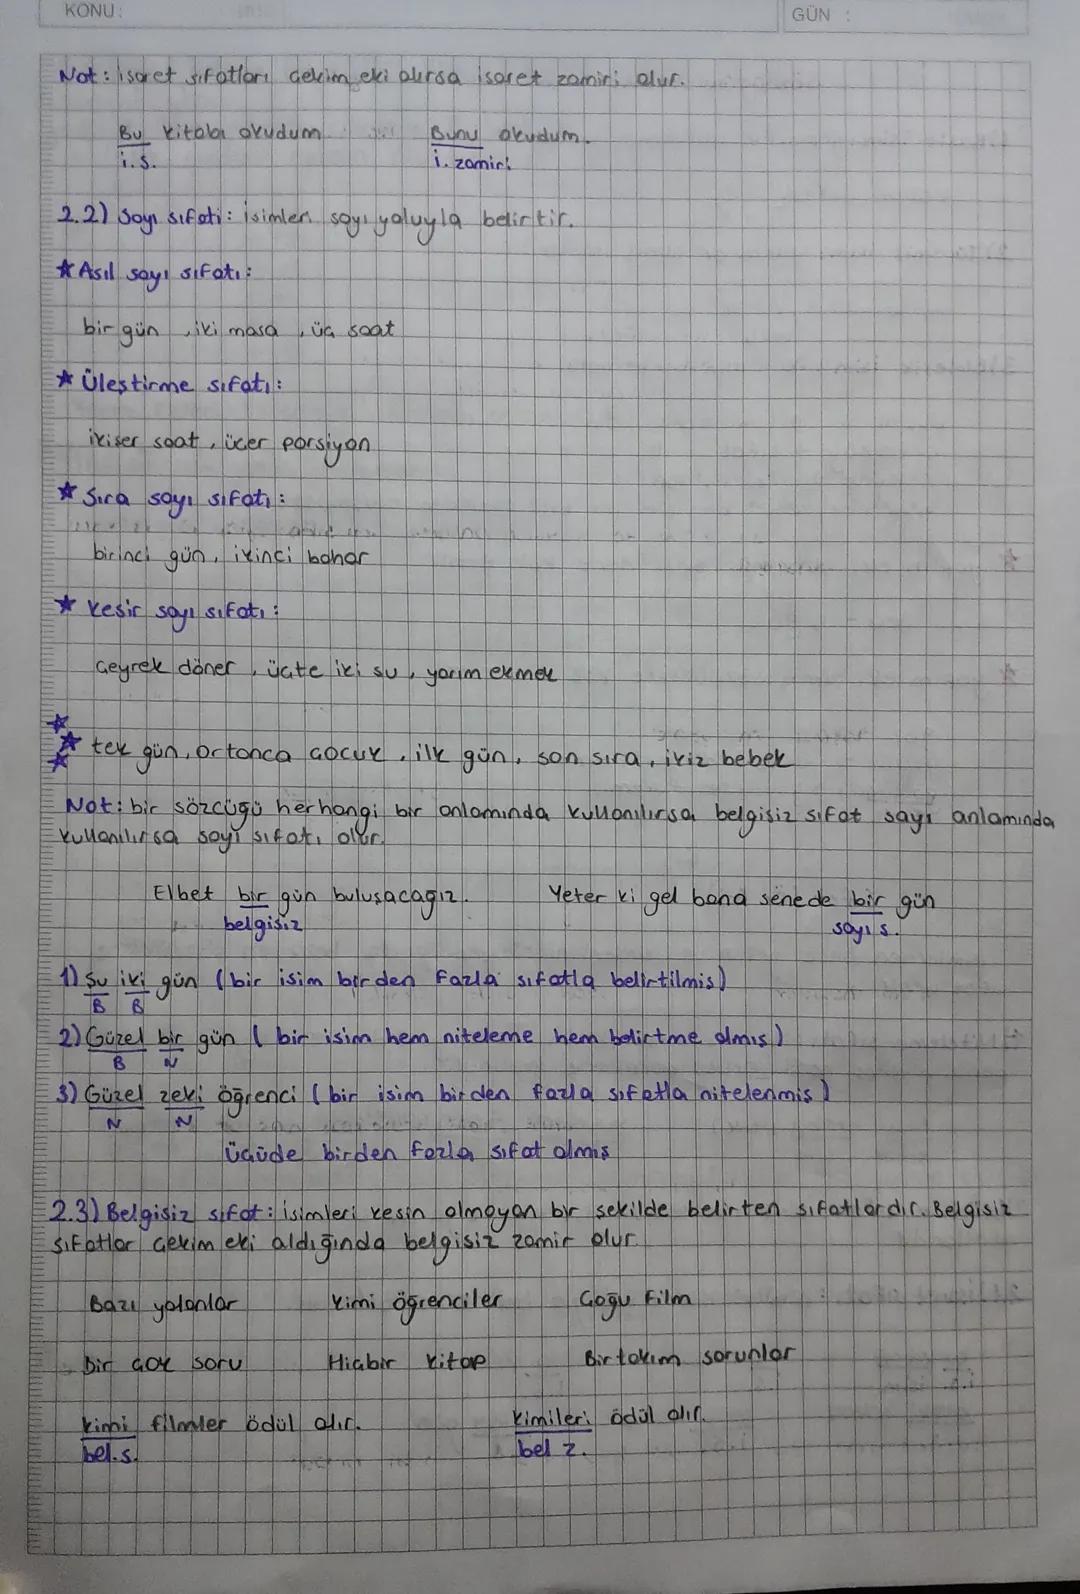 KONU:
GÜN :
Not: işaret sıfatları çekim eki alırsa işaret zamiri olur.
Bu kitabı okudum. Bunu okudum.
i.s. i. zamiri
2.2) Sayı sıfatı: isimleri sayı yoluyla belirtir.
★ Asıl sayı sıfatı:
bir gün, iki masa, üç saat
★ Üleştirme sıfatı:
ikişer saat, üçer porsiyon
★ Sıra sayı sıfatı:
birinci gün, ikinci bahar
★ Kesir sayı sıfatı:
çeyrek döner, üçte iki su, yarım ekmek
★★★ tek gün, ortanca çocuk, ilk gün, son sıra, ikiz bebek
Not: bir sözcüğü herhangi bir anlamında kullanılırsa belgisiz sıfat sayı anlamında
kullanılırsa sayı sıfatı olur.
Elbet bir gün buluşacağız. Yeter ki gel bana senede bir gün
belgisiz sayı s.
1) Şu iki gün (bir isim birden fazla sıfatla belirtilmiş)
B B
2) Güzel bir gün (bir isim hem niteleme hem belirtme almış)
B N
3) Güzel zeki öğrenci (bir isim birden fazla sıfatla nitelenmiş)
N N
Üçüde birden fazla sıfat almış
2.3) Belgisiz sıfat: isimleri kesin olmayan bir şekilde belirten sıfatlardır. Belgisiz
sıfatlar çekim eki aldığında belgisiz zamir olur
Bazı yalanlar Kimi öğrenciler Çoğu film
Bir çok soru Hiçbir kitap Birtakım sorunlar
Kimi filmler ödül alır. Kimileri ödül alır.
bel.s. bel z.